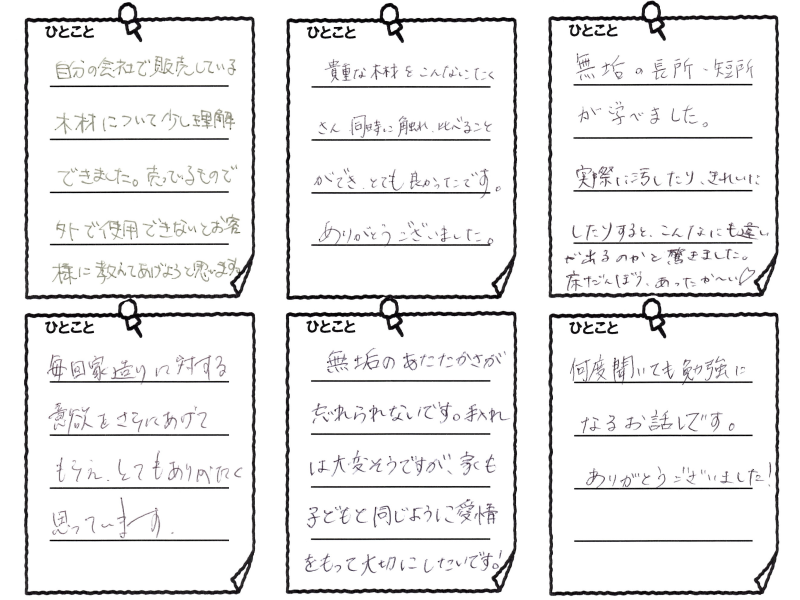 ひとこと
自分の会社で販売している
木材について少し理解
できました。売っているもので
外で使用できないとお客
様に教えてあげようと思います。
ひとこと
貴重な木材をこんなにたく
さん同時に触れ、比べること
ができ、とても良かったです。
ありがとうございました。
ひとこと
無垢の長所・短所
が学べました。
実際に汚したり、きれいに
したりすると、こんなにも違い
が出るのかと驚きました。
床だんぼう、あったか〜い♡
ひとこと
毎回家造りに対する
意欲をさらにあげて
もらえ、とてもありがたく
思っています。
ひとこと
無垢のあたたかさが
忘れられないです。手入れ
は大変そうですが、家も
子どもと同じように愛情
をもって大切にしたいです!
ひとこと
何度聞いても勉強に
なるお話しです。
ありがとうございました!